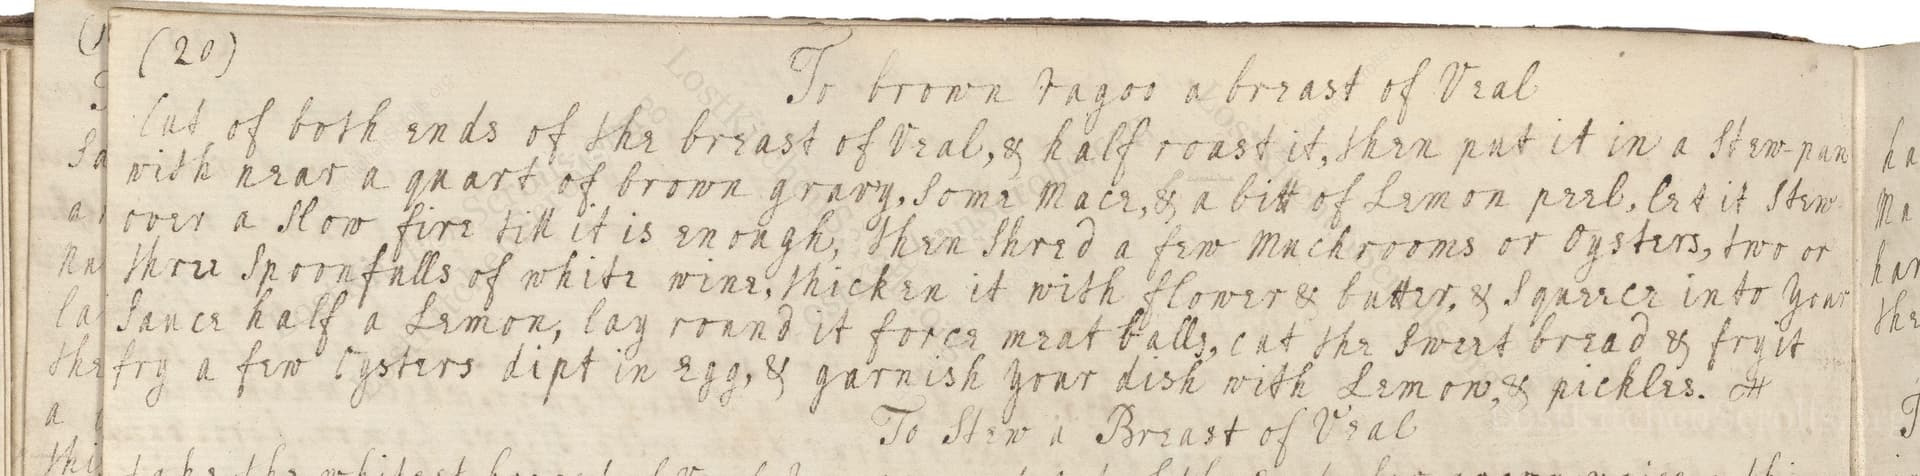 (20)
To brown ragoo a breast of Veal
Cut of both ends of the breast of Veal, & half roast it, then put it in a Stew-pan
with near a quart of brown gravy, Some Mace, & a bitt of Lemon peel, let it Stew
over a Slow fire till it is enough, then Shred a few Muchrooms or Oysters, two or
three Spoonfulls of white wine, thicken it with flower & butter, & Squeece into your
Sauce half a Lemon, lay round it force meat balls, cut the Sweet bread & fry it
fry a few Oysters dipt in egg, & garnish your dish with Lemon, & pickles.
To Stew a Breast of Veal
take the whitest breast of Veal